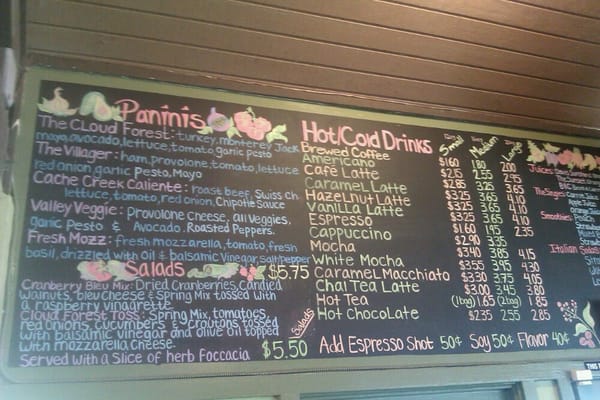 Paninis
The Cloud Forest: turkey, monterey Jack
mayo, avocado, lettuce, tomato, garlic pesto
The Villager: ham, provolone, tomato, lettuce
red onion, garlic Pesto, Mayo
Cache Creek Caliente: roast beef, Swiss ch.
lettuce, tomato, red onion, Chipotle Sauce
Valley Veggie: Provolone Cheese, all veggies,
garlic Pesto & Avocado. Roasted Peppers.
Fresh Mozz: fresh mozzarella, tomato, fresh
basil, drizzled with oil & balsamic Vinegar, salt/pepper
Salads $5.75
Cranberry Bleu Mix: Dried Cranberries, Candied
Walnuts, bleu Cheese & Spring Mix tossed with
a raspberry vinaigrette
Cloud Forest Toss: Spring Mix, tomatoes,
red onions, cucumbers & Croutons tossed
with balsamic vinegar and olive oil topped
with mozzarella cheese.
Served with a Slice of herb foccacia
$5.50
Salads
Hot/Cold Drinks
Small Medium Large
Brewed Coffee $1.60 1.80 2.00
Americano $2.15 2.55
Café Latte $2.85 3.25
Caramel Latte $3.25 3.65
Hazelnut Latte $3.25 3.65 4.10
Vanilla Latte $3.25 3.65 4.10
Espresso $1.60 1.95 2.35
Cappuccino $2.90 3.35
Mocha $3.40 3.85 4.15
White Mocha $3.55 3.95 4.30
Caramel Macchiato $3.30 3.75
Chai Tea Latte $3.00 3.45 3.80
Hot Tea (1bag) 1.65 (2bag) 1.85
Hot Chocolate $2.35 2.55 2.85
Add Espresso Shot 50¢ Soy 50¢ Flavor 40¢
Juices:
Smoothies:
Italian Soda
THIS